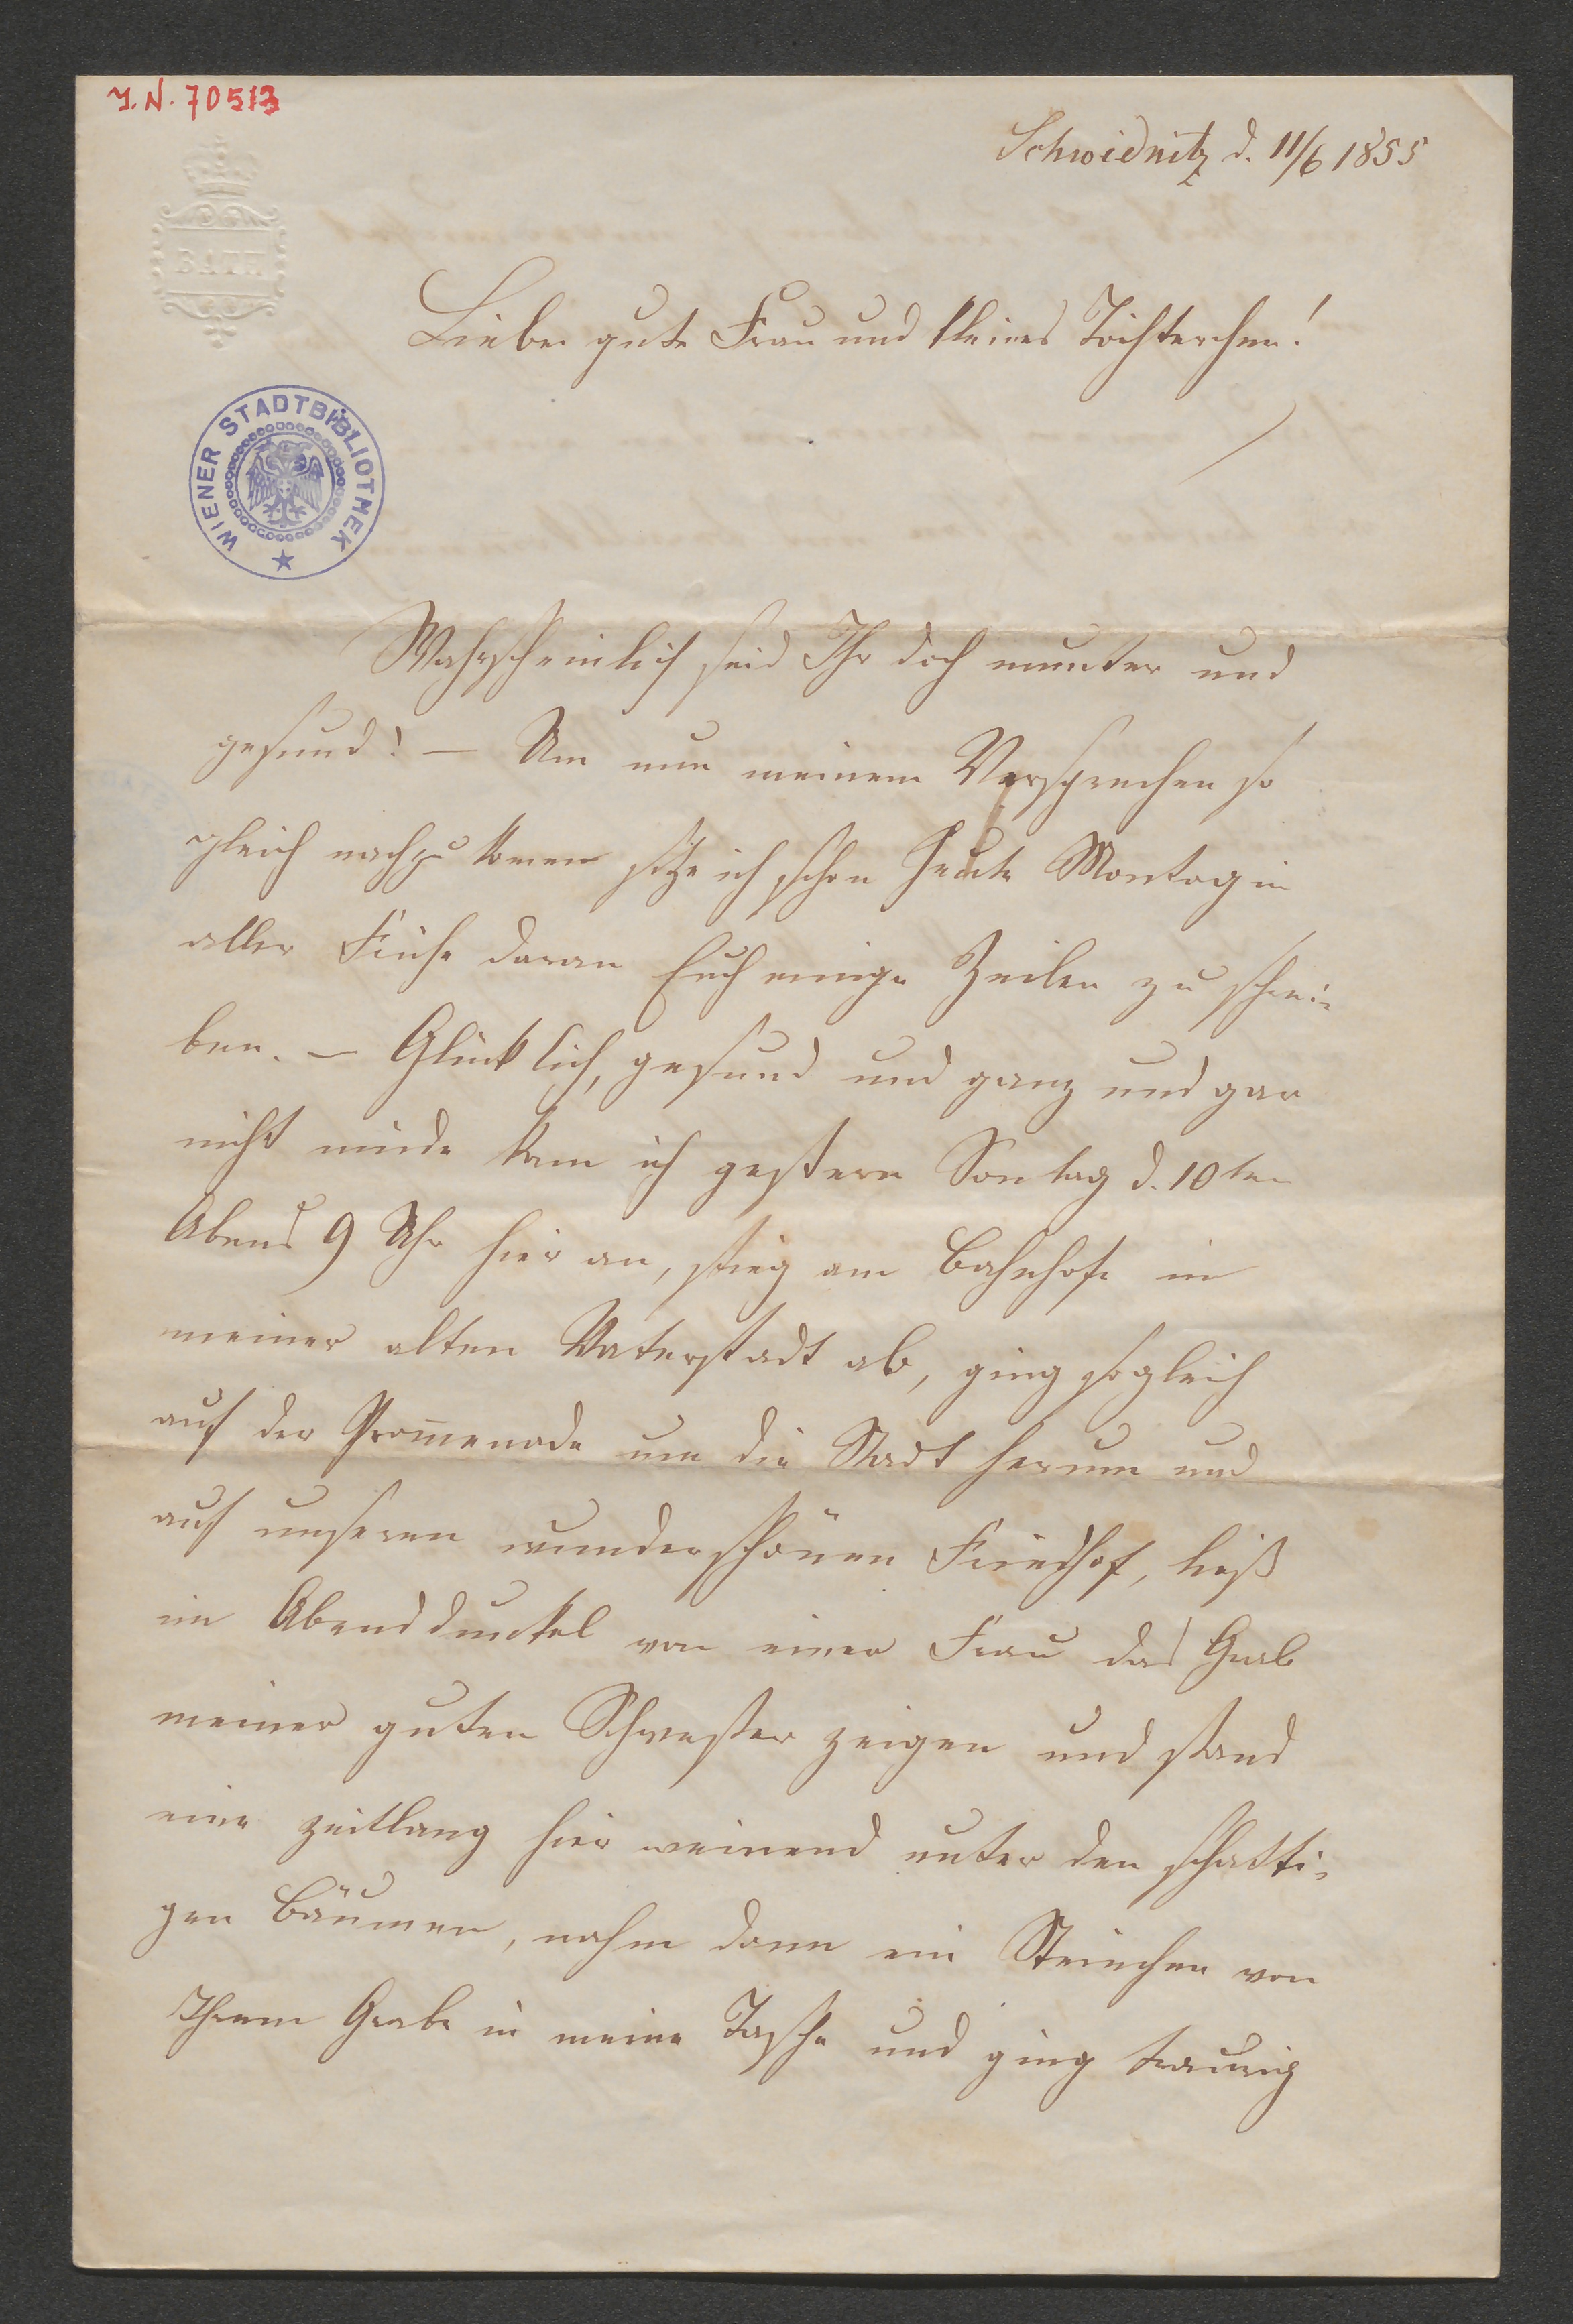 I. N. 70513
Schweidnitz d. 11/6 1855
BATH
Liebe gute Frau und kleines Töchterchen!
WIENER STADTBIBLIOTHEK
Wahrscheinlich seid Ihr doch munter und
gesund! — Um nun meinem Versprechen so
gleich nachzukomen sitze ich schon heute Montag in
aller Frühe daran Euch einige Zeilen zu schrei-
ben. — Glücklich, gesund und ganz und gar
nicht müde kam ich gestern Sontag d. 10ten
Abends 9 Uhr hier an, stieg am Bahnhofe in
meiner alten Vaterstadt ab, ging sogleich
auf der Prom̅enade um die Stadt herum und
auf unseren wunderschönen Friedhof, ließ
im Abenddunkel von einer Frau das Grab
meiner guten Schwester zeigen und stand
eine zeitlang hier weinend unter den schatti-
gen Bäumen, nahm dann ein Steinchen von
Ihrem Grabe in meine Tasche und ging traurig